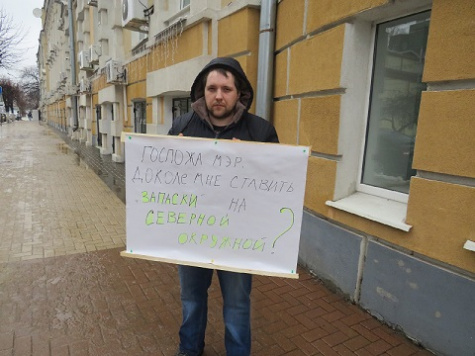 ГОСПОЖА МЭР.
ДОКОЛЕ МНЕ СТАВИТЬ
ЗАПАСКИ НА
СЕВЕРНОЙ
ОКРУЖНОЙ?